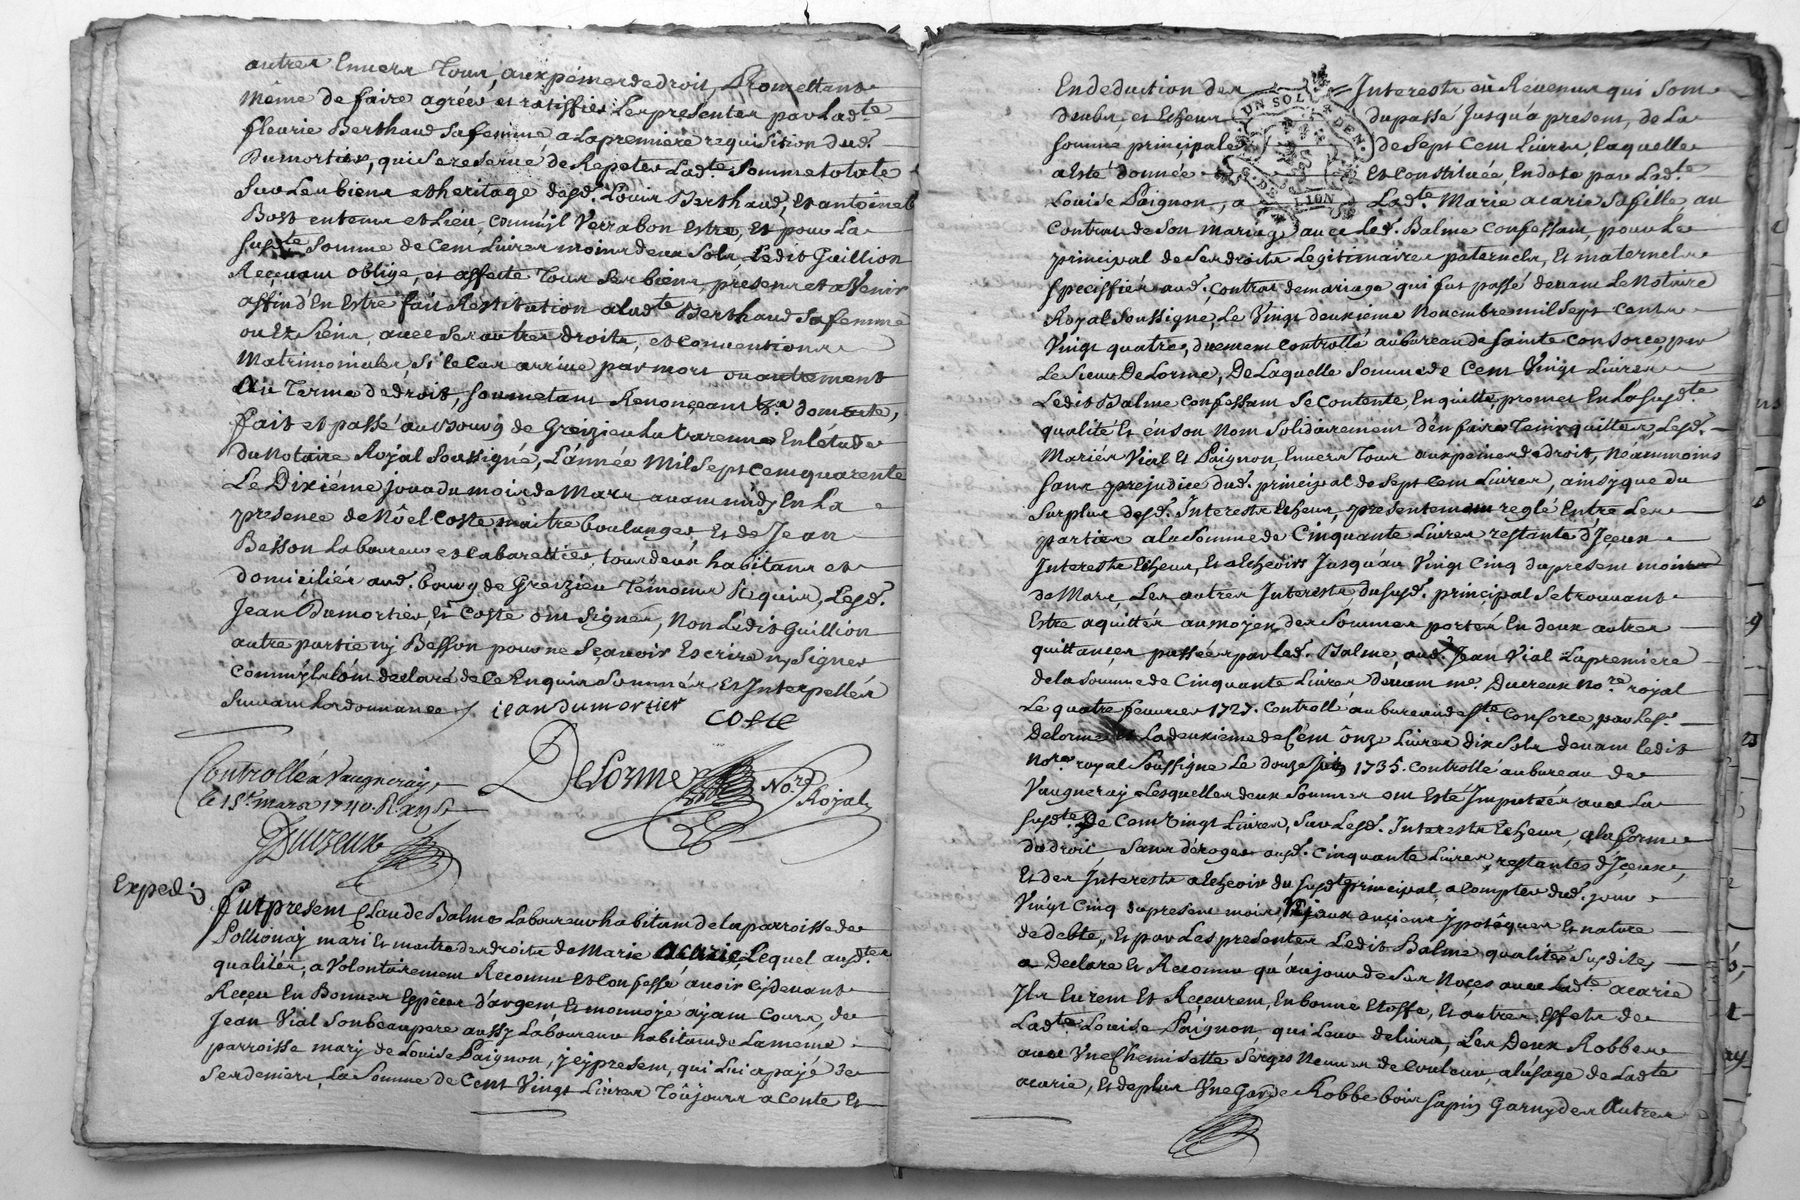 autres Envers Tous, aux peines de droit, Promettant
même de faire agréer et ratiffier Les presentes par Ladte
fleurie Berthaud sa femme, a La premiere requisition dudt
Dumortier, qui se reserve de Repeter Ladte Somme totale
Sur Les biens et heritage desdt Louis Berthaud, Et antoinette
Bost en tems et Lieu, comm'jl Verra bon Estre, Et pour La
susdte somme de Cent Livres moins deux Sols, Ledit Guillion
Reçevant oblige, et affecte Tous ses biens presens et a Venir
affin d'En Estre fait Restitution a Ladte Berthaud sa femme
ou Ez siens, avec ses autres droits, et Conventions
Matrimoniales, Si le Cas arrive par mort ou autrement
Au Terme de droit, soumetant Renonçeant &a dont acte,
fait et passé au Bourg de Greizieu La Varenne En l'étude
du Notaire Royal Soussigné, L'année Mil Sept Cent quarente
Le Dixiéme jour du mois de Mars avant midy En La
presence de Nôel Coste maitre boulanger, Et de Jean
Besson Laboureur et Cabarettier, tous deux habitans et
domiciliés audt bourg de Greizieu Témoins Réquis, Lesdt
Jean Dumortier, Et Coste ont signés, Non Ledit Guillion
autre partie nj Besson pour ne Sçavoir Escrire nj Signer
Comm'jls l'ont declaré de Ce Enquis Sommés Et Interpellés
Suivant Lordonnance
jean dumortier
coste
Controllé a Vaugneray
le 15e mars 1740. R. xii s
Delorme Nore Royal
Ducreux
Exped.
Fut present Claude Balme Laboureur habitant de la parroisse de
Pollionaj mari Et maitre des droits de Marie acarie, Lequel ausdtes
qualités, a Volontairement Reconnu Et Confessé avoir Cydevant
Reçeu En Bonnes Espêces d'argent, Et monnoye ajant Cours, de
Jean Vial Son beaupere aussy Laboureur habitant de La meme
parroisse marj de Louise Paignon, jcy present, qui Lui a payé de
Ses deniers, La Somme de Cent Vingt Livres Toûjours a Conte Et
En deduction des Interests où Revenus qui Sont
deubs, et Echeus du passé Jusqu'a present, de La
somme principale de Sept Cent Livres, Laquelle
a Esté donnée Et Constituée, En dote par Ladte
Louise Paignon, a Ladte Marie acarie Sa fille au
Contrat de Son mariage avec Ledt Balme Confessant, pour Le
principal de Ses droits Legitimaires paternels, Et maternels
specifiés audt Contrat de mariage qui fut passé devant Le Notaire
Royal Soussigné, Le Vingt deuxieme Novembre mil Sept Cents
Vingt quatre, duement Controllé au bureau de sainte Consorce, par
Le Sieur DeLorme, De Laquelle Somme de Cent Vingt Livres
Ledit Balme Confessant Se Contente, En quitte, promet En La susdte
qualité Et én son Nom Solidairement d'en faire Tenir quittes, Lesdt
Mariés Vial Et Paignon, Envers Tous aux peines de droit, Néanmoins
sans prejudice dudt principal de Sept Cent Livres, ainsy que du
Surplus desdt Interests Echeus, presentement reglé Entre Les
parties a La Somme de Cinquante Livres restante d'Içeux
Interests Echeus, Et a Echeoirs Jusqu'au Vingt Cinq du present mois
de Mars, Les autres Interests, du susdt principal Se trouvant
Estre aquittés au moyen des Sommes portés En deux autres
quittançes passées par Ledt Balme, audt Jean Vial La premiere
de la Somme de Cinquante Livres devant me Ducreux nore royal
Le quatre fevrier 1727. Controllé au bureau de ste Consorce, par Ledt
delorme Et La deuxieme de Cent ônze Livres dix Sols devant ledit
nore royal Soussigné Le douze 1735. Controllé au bureau de
Vaugneraj Lesquelles deux Sommes ont Esté Imputées avec La
susdte De Cent Vingt Livres, Sur Lesdt Interests Echeus, a la forme
du droit Sans déroger ausdt Cinquante Livres, restantes d'Içeux,
Et des Interests a Echeoir du susdt principal a Compter dudt jour
Vingt Cinq du present mois, Nj aux anciens ypotêques Et nature
de debte, Et par Les presentes Ledit Balme qualités Susdites
a Declare Et Reconnu qu'au jour de Ses Noçes avec Ladte acarie
Jls Eurent Et Reçeurent, En bonne Etoffe, Et autres Effets de
Ladte Louise Paignon, qui Leur delivra, Les Deux Robbes
avec Vne Chemisette Serges Neuves de Couleur, a l'usage de Ladte
acarie, Et de plus Vne Garde Robbe bois sapin Garny des Autres
UN SOL
G. DE LION